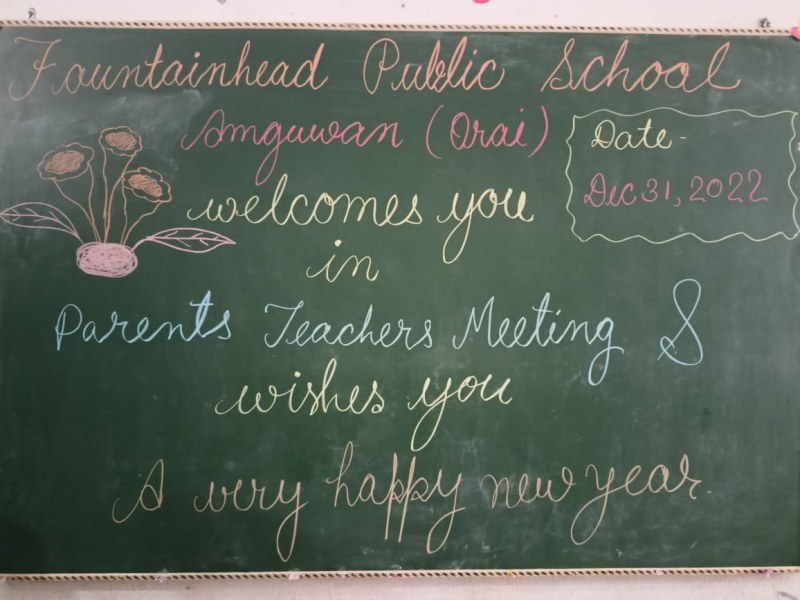 Fountainhead Public School
Amguwan (Orai)
Date -
Dec 31, 2022
welcomes you
in
Parents Teachers Meeting &
wishes you
A very happy new year.